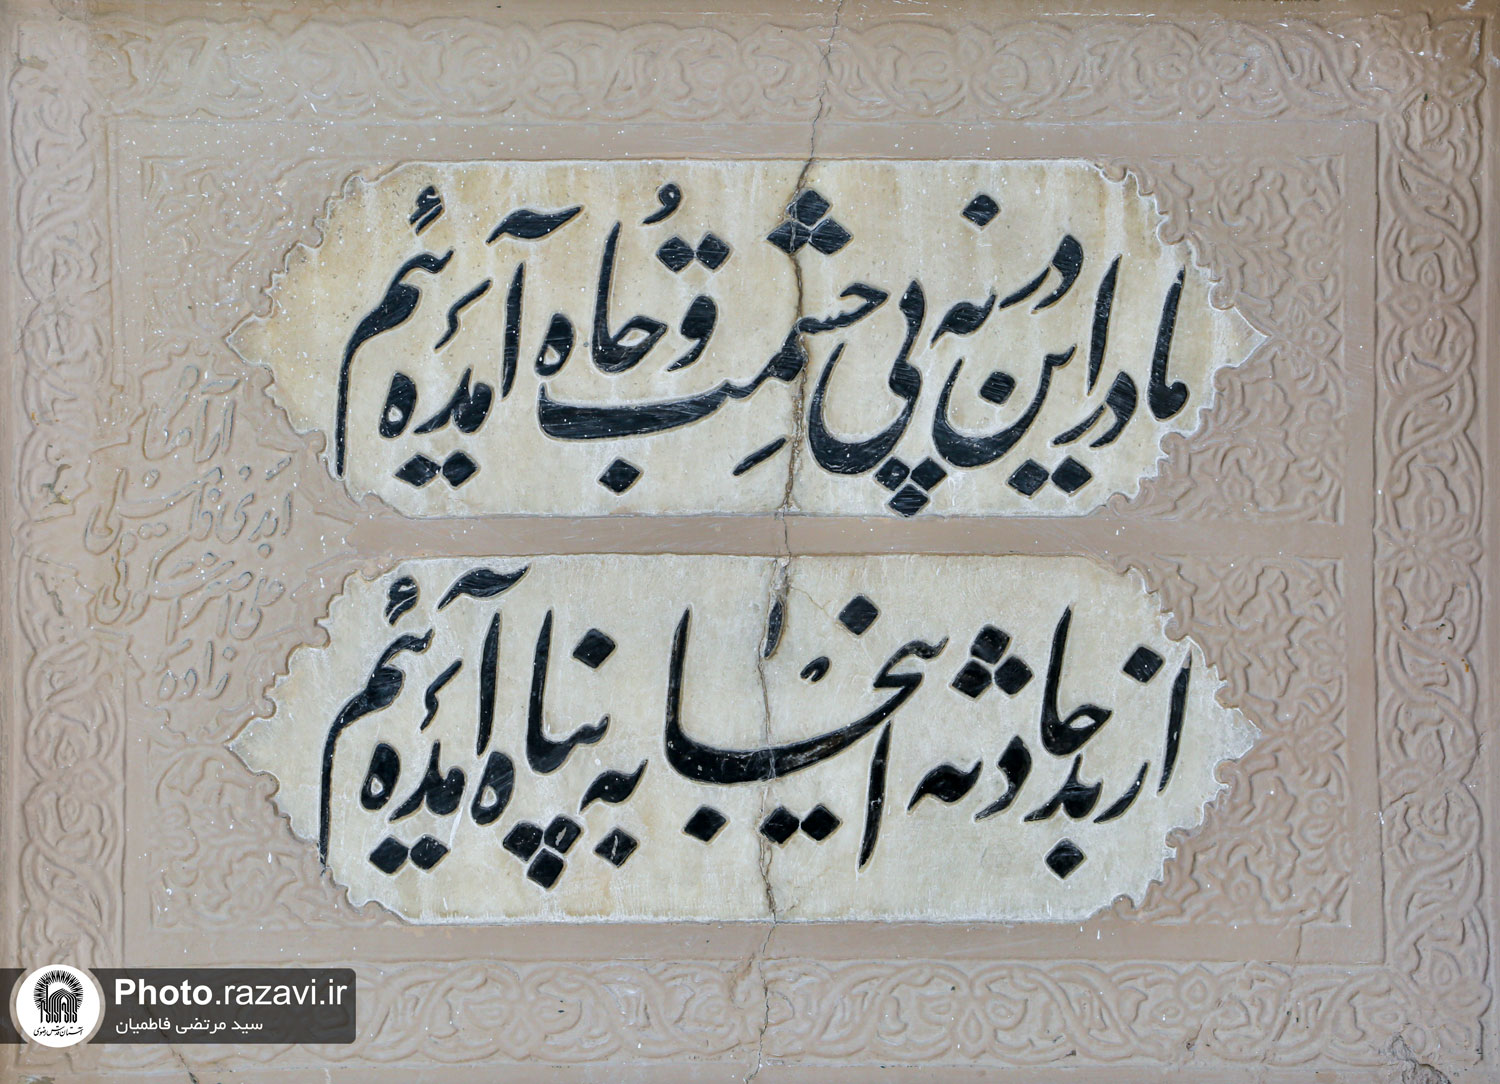 ما در این در نه پی حشمت و جاه آمده‌ئیم
از بد حادثه اینجا به پناه آمده‌ئیم
علی اصغر
زاده
Photo.razavi.ir
سید مرتضی فاطمیان
آستان قدس رضوی